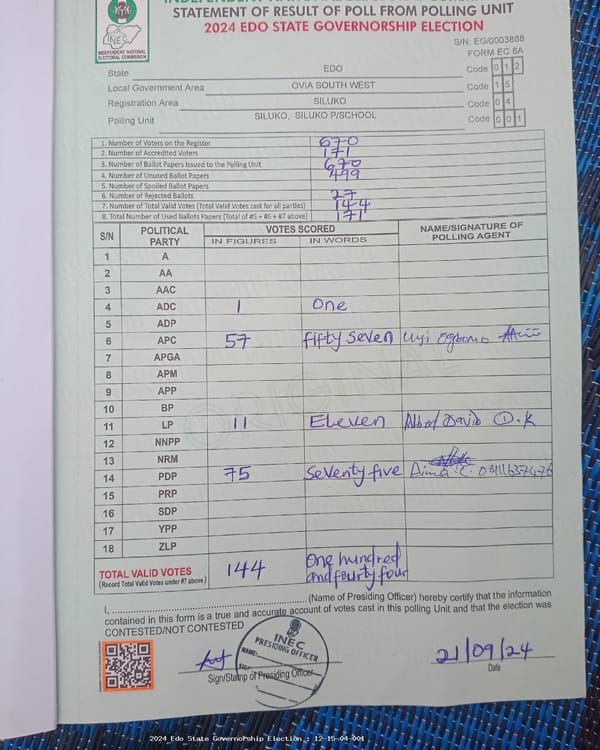 STATEMENT OF RESULT OF POLL FROM POLLING UNIT
2024 EDO STATE GOVERNORSHIP ELECTION
INEC
INDEPENDENT NATIONAL
ELECTORAL COMMISSION
S/N: EG/0003888
FORM EC 8A
State EDO Code 0 1 2
Local Government Area OVIA SOUTH WEST Code 1 5
Registration Area SILUKO Code 0 4
Polling Unit SILUKO, SILUKO P/SCHOOL Code 0 0 1
1. Number of Voters on the Register 670
2. Number of Accredited Voters 171
3. Number of Ballot Papers Issued to the Polling Unit 670
4. Number of Unused Ballot Papers 499
5. Number of Spoiled Ballot Papers
6. Number of Rejected Ballots 27
7. Number of Total Valid Votes (Total Valid Votes cast for all parties) 144
8. Total Number of Used Ballots Papers (Total of #5 + #6 + #7 above) 171
S/N POLITICAL PARTY VOTES SCORED NAME/SIGNATURE OF POLLING AGENT
IN FIGURES IN WORDS
1 A
2 AA
3 AAC
4 ADC 1 One
5 ADP
6 APC 57 Fifty Seven Uyi
7 APGA
8 APM
9 APP
10 BP
11 LP 11 Eleven David
12 NNPP
13 NRM
14 PDP 75 Seventy five
15 PRP
16 SDP
17 YPP
18 ZLP
ORIGINAL
TOTAL VALID VOTES 144 One hundred and fourty four
(Record Total Valid Votes under #7 above)
I, .......... (Name of Presiding Officer) hereby certify that the information
contained in this form is a true and accurate account of votes cast in this polling Unit and that the election was
CONTESTED/NOT CONTESTED
INEC
PRESIDING OFFICER
NAME:
SIGN:
21/09/24
Sign/Stamp of Presiding Officer
Date
2024 Edo State Governorship Election : 12-15-04-001